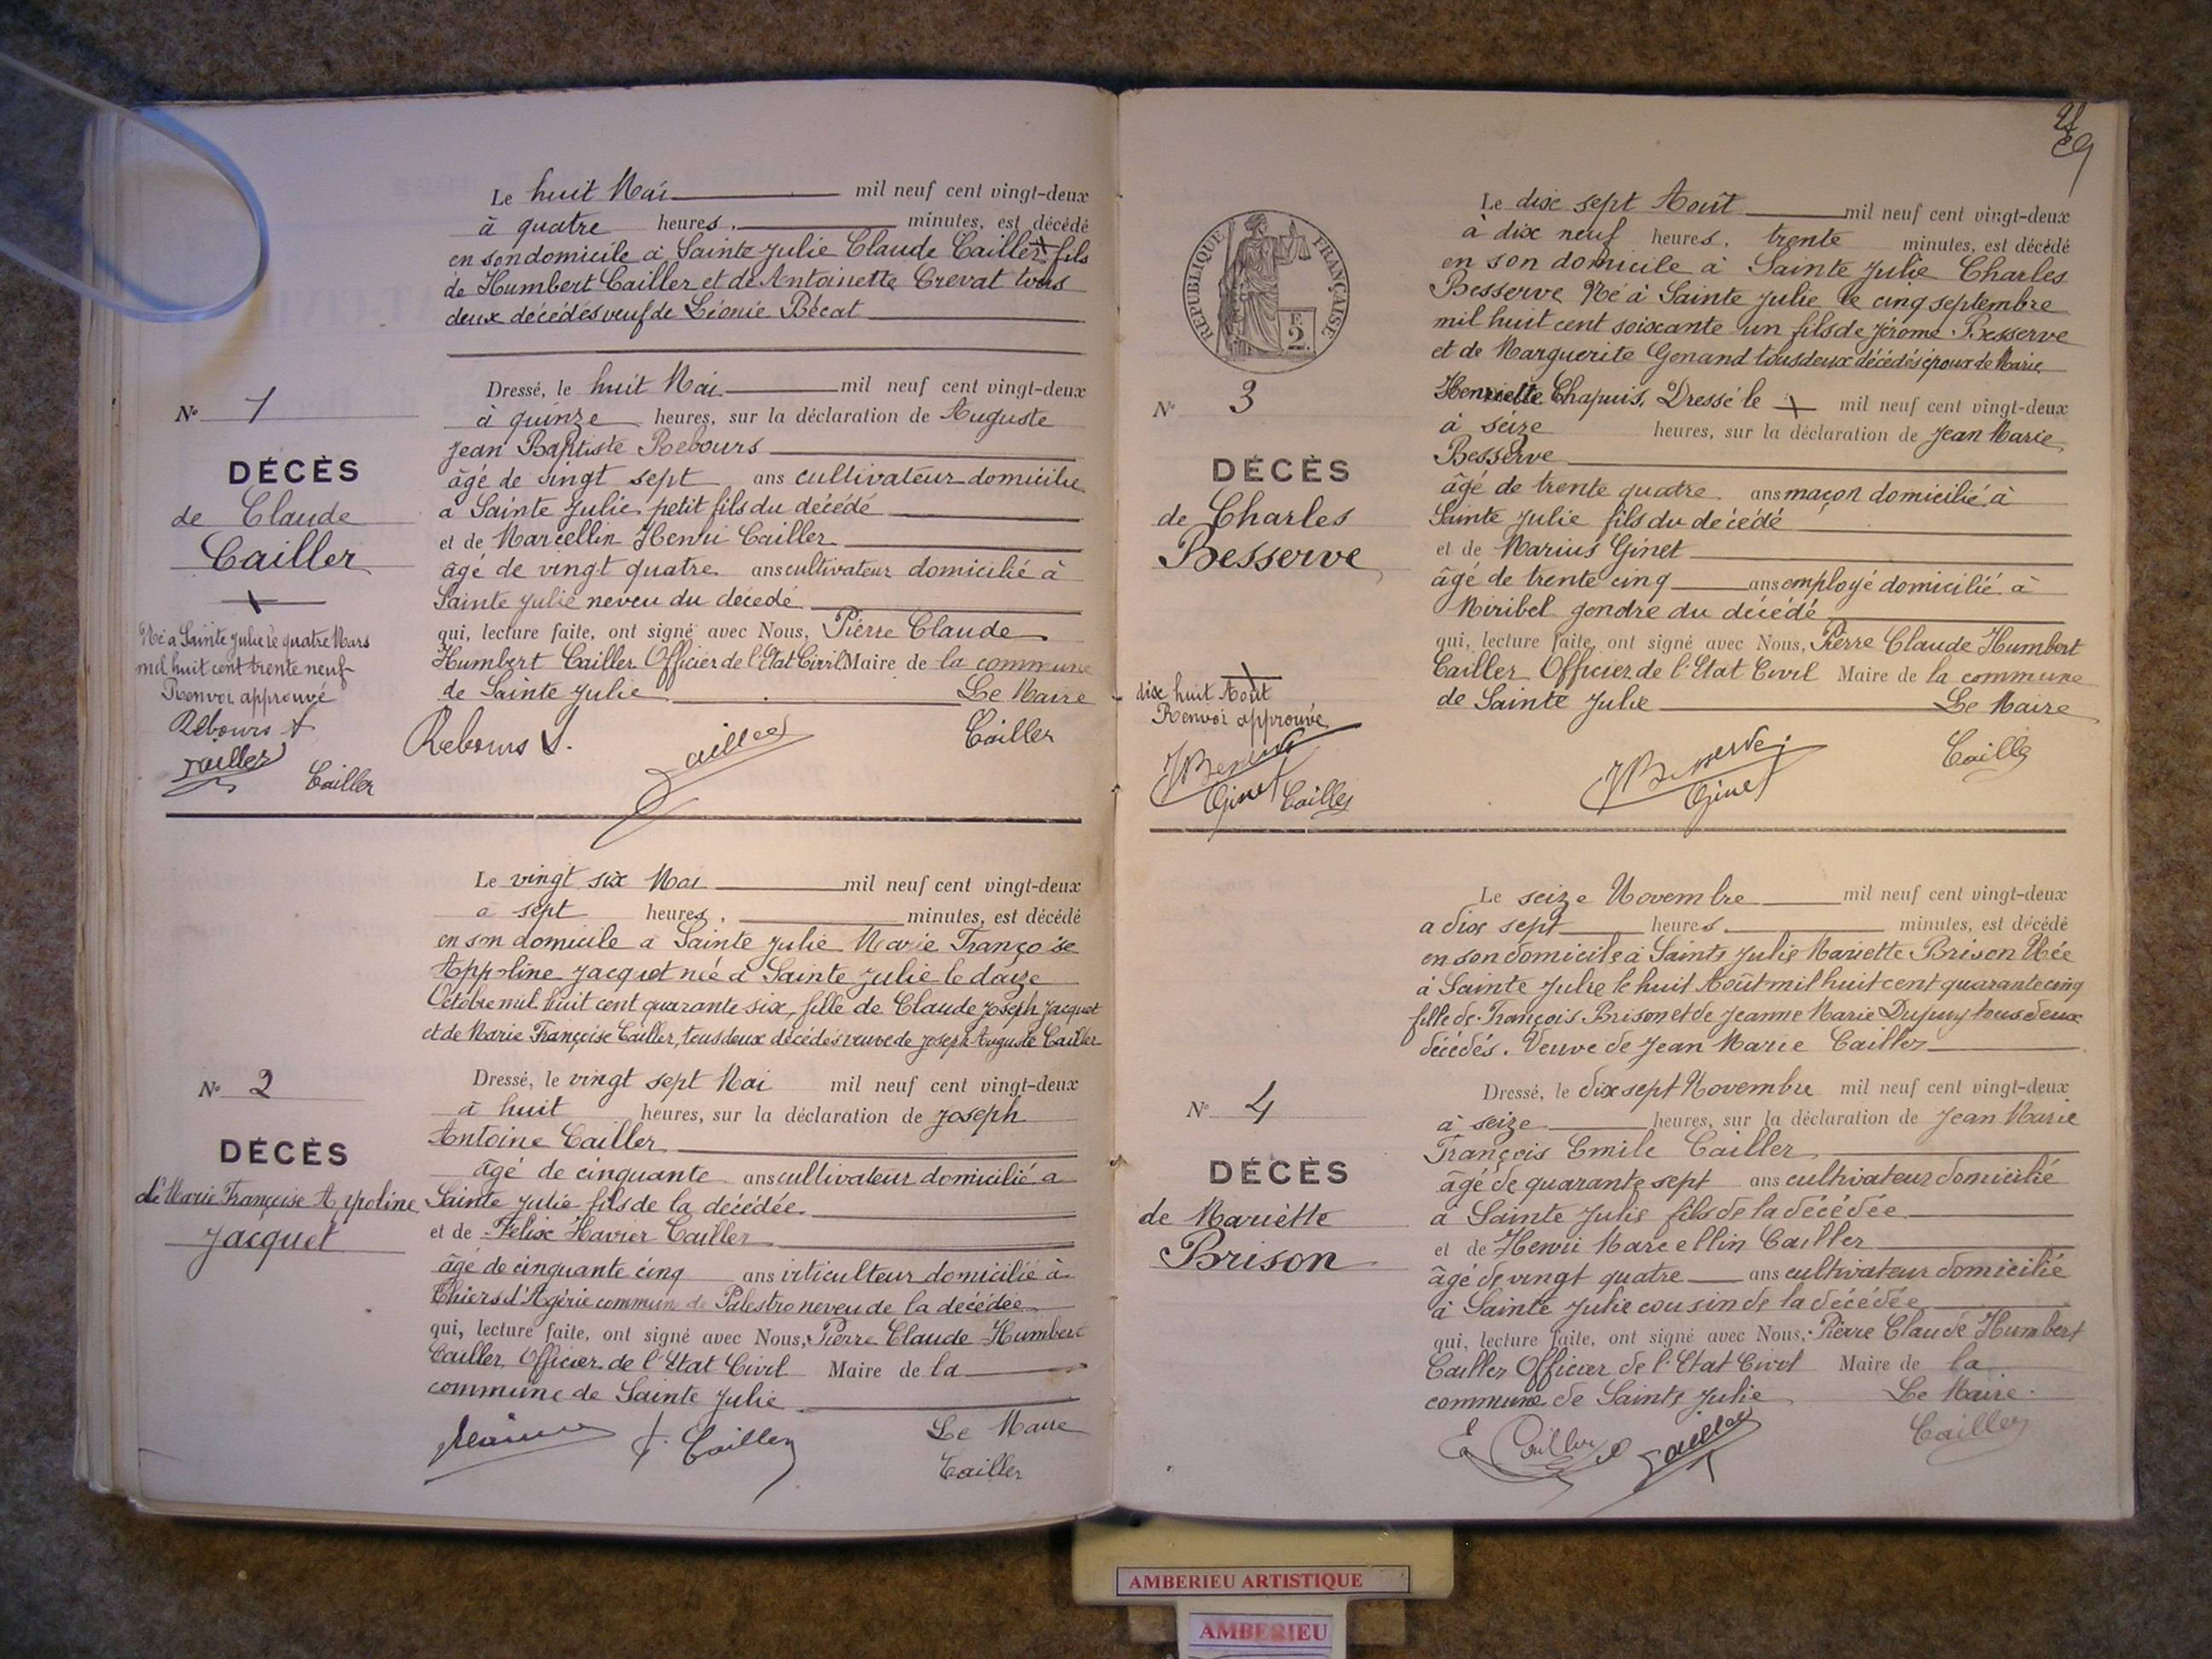 Le huit Mai mil neuf cent vingt-deux
à quatre heures, minutes, est décédé
en son domicile à Sainte Julie Claude Cailler fils
de Humbert Cailler et de Antoinette Crevat tous
deux décédés veuf de Léonie Bécat
Nº 1
DÉCÈS
de Claude
Cailler
Né à Sainte Julie le quatre Mars
mil huit cent trente neuf
Renvoi approuvé
Rebours
Cailler
Cailler
Dressé, le huit Mai mil neuf cent vingt-deux
à quinze heures, sur la déclaration de Auguste
Jean Baptiste Rebours
âgé de vingt sept ans cultivateur domicilié
à Sainte Julie petit fils du décédé
et de Marcellin Henri Cailler
âgé de vingt quatre ans cultivateur domicilié à
Sainte Julie neveu du décédé
qui, lecture faite, ont signé avec Nous, Pierre Claude
Humbert Cailler Officier de l'Etat Civil Maire de la commune
de Sainte Julie Le Maire
Rebours Cailler Cailler
Le vingt six Mai mil neuf cent vingt-deux
a sept heures, minutes, est décédé
en son domicile a Sainte Julie Marie Françoise
Appoline Jacquet née à Sainte Julie le
Octobre mil huit cent quarante six, fille de Claude Joseph Jacquet
et de Marie Françoise Cailler, tous deux décédés veuve de Joseph Auguste Cailler
Nº 2
DÉCÈS
de Marie Françoise Appoline
Jacquet
Dressé, le vingt sept Mai mil neuf cent vingt-deux
à huit heures, sur la déclaration de Joseph
Antoine Cailler
âgé de cinquante ans cultivateur domicilié a
Sainte Julie fils de la décédée
et de Félix Xavier Cailler
âgé de cinquante cinq ans viticulteur domicilié à
Thiers d'Agérie commune de Palestro neveu de la décédée
qui, lecture faite, ont signé avec Nous, Pierre Claude Humbert
Cailler Officier de l'Etat Civil Maire de la
commune de Sainte Julie
F. Cailler
Le Maire
Cailler
29
REPUBLIQUE FRANÇAISE
F.
2.
Le dix sept Août mil neuf cent vingt-deux
à dix neuf heures, trente minutes, est décédé
en son domicile à Sainte Julie Charles
Besserve Né à Sainte Julie le cinq septembre
mil huit cent soixante un fils de Jérome Besserve
et de Marguerite Genand tous deux décédés époux de Marie
Henriette Chapuis. Dressé le mil neuf cent vingt-deux
Nº 3
DÉCÈS
de Charles
Besserve
dix huit Août
Renvoi approuvé
JBesserve
Ginet Cailler
à seize heures, sur la déclaration de Jean Marie
Besserve
âgé de trente quatre ans maçon domicilié à
Sainte Julie fils du décédé
et de Marius Ginet
âgé de trente cinq ans employé domicilié à
Miribel gendre du décédé
qui, lecture faite, ont signé avec Nous, Pierre Claude Humbert
Cailler Officier de l'Etat Civil Maire de la commune
de Sainte Julie Le Maire
JBesserve Cailler
Ginet
Le seize Novembre mil neuf cent vingt-deux
a dix sept heures minutes, est décédé
en son domicile à Sainte Julie Mariette Brison Née
à Sainte Julie le huit Août mil huit cent quarante cinq
fille de François Brison et de Jeanne Marie Dupuy tous deux
décédés. Veuve de Jean Marie Cailler
Nº 4
DÉCÈS
de Mariette
Brison
Dressé, le dix sept Novembre mil neuf cent vingt-deux
à seize heures, sur la déclaration de Jean Marie
François Emile Cailler
âgé de quarante sept ans cultivateur domicilié
à Sainte Julie fils de la décédée
et de Henri Marcellin Cailler
âgé de vingt quatre ans cultivateur domicilié
à Sainte Julie cousin de la décédée
qui, lecture faite, ont signé avec Nous, Pierre Claude Humbert
Cailler Officier de l'Etat Civil Maire de la
commune de Sainte Julie Le Maire
E Cailler Cailler Cailler
AMBERIEU ARTISTIQUE
AMBERIEU